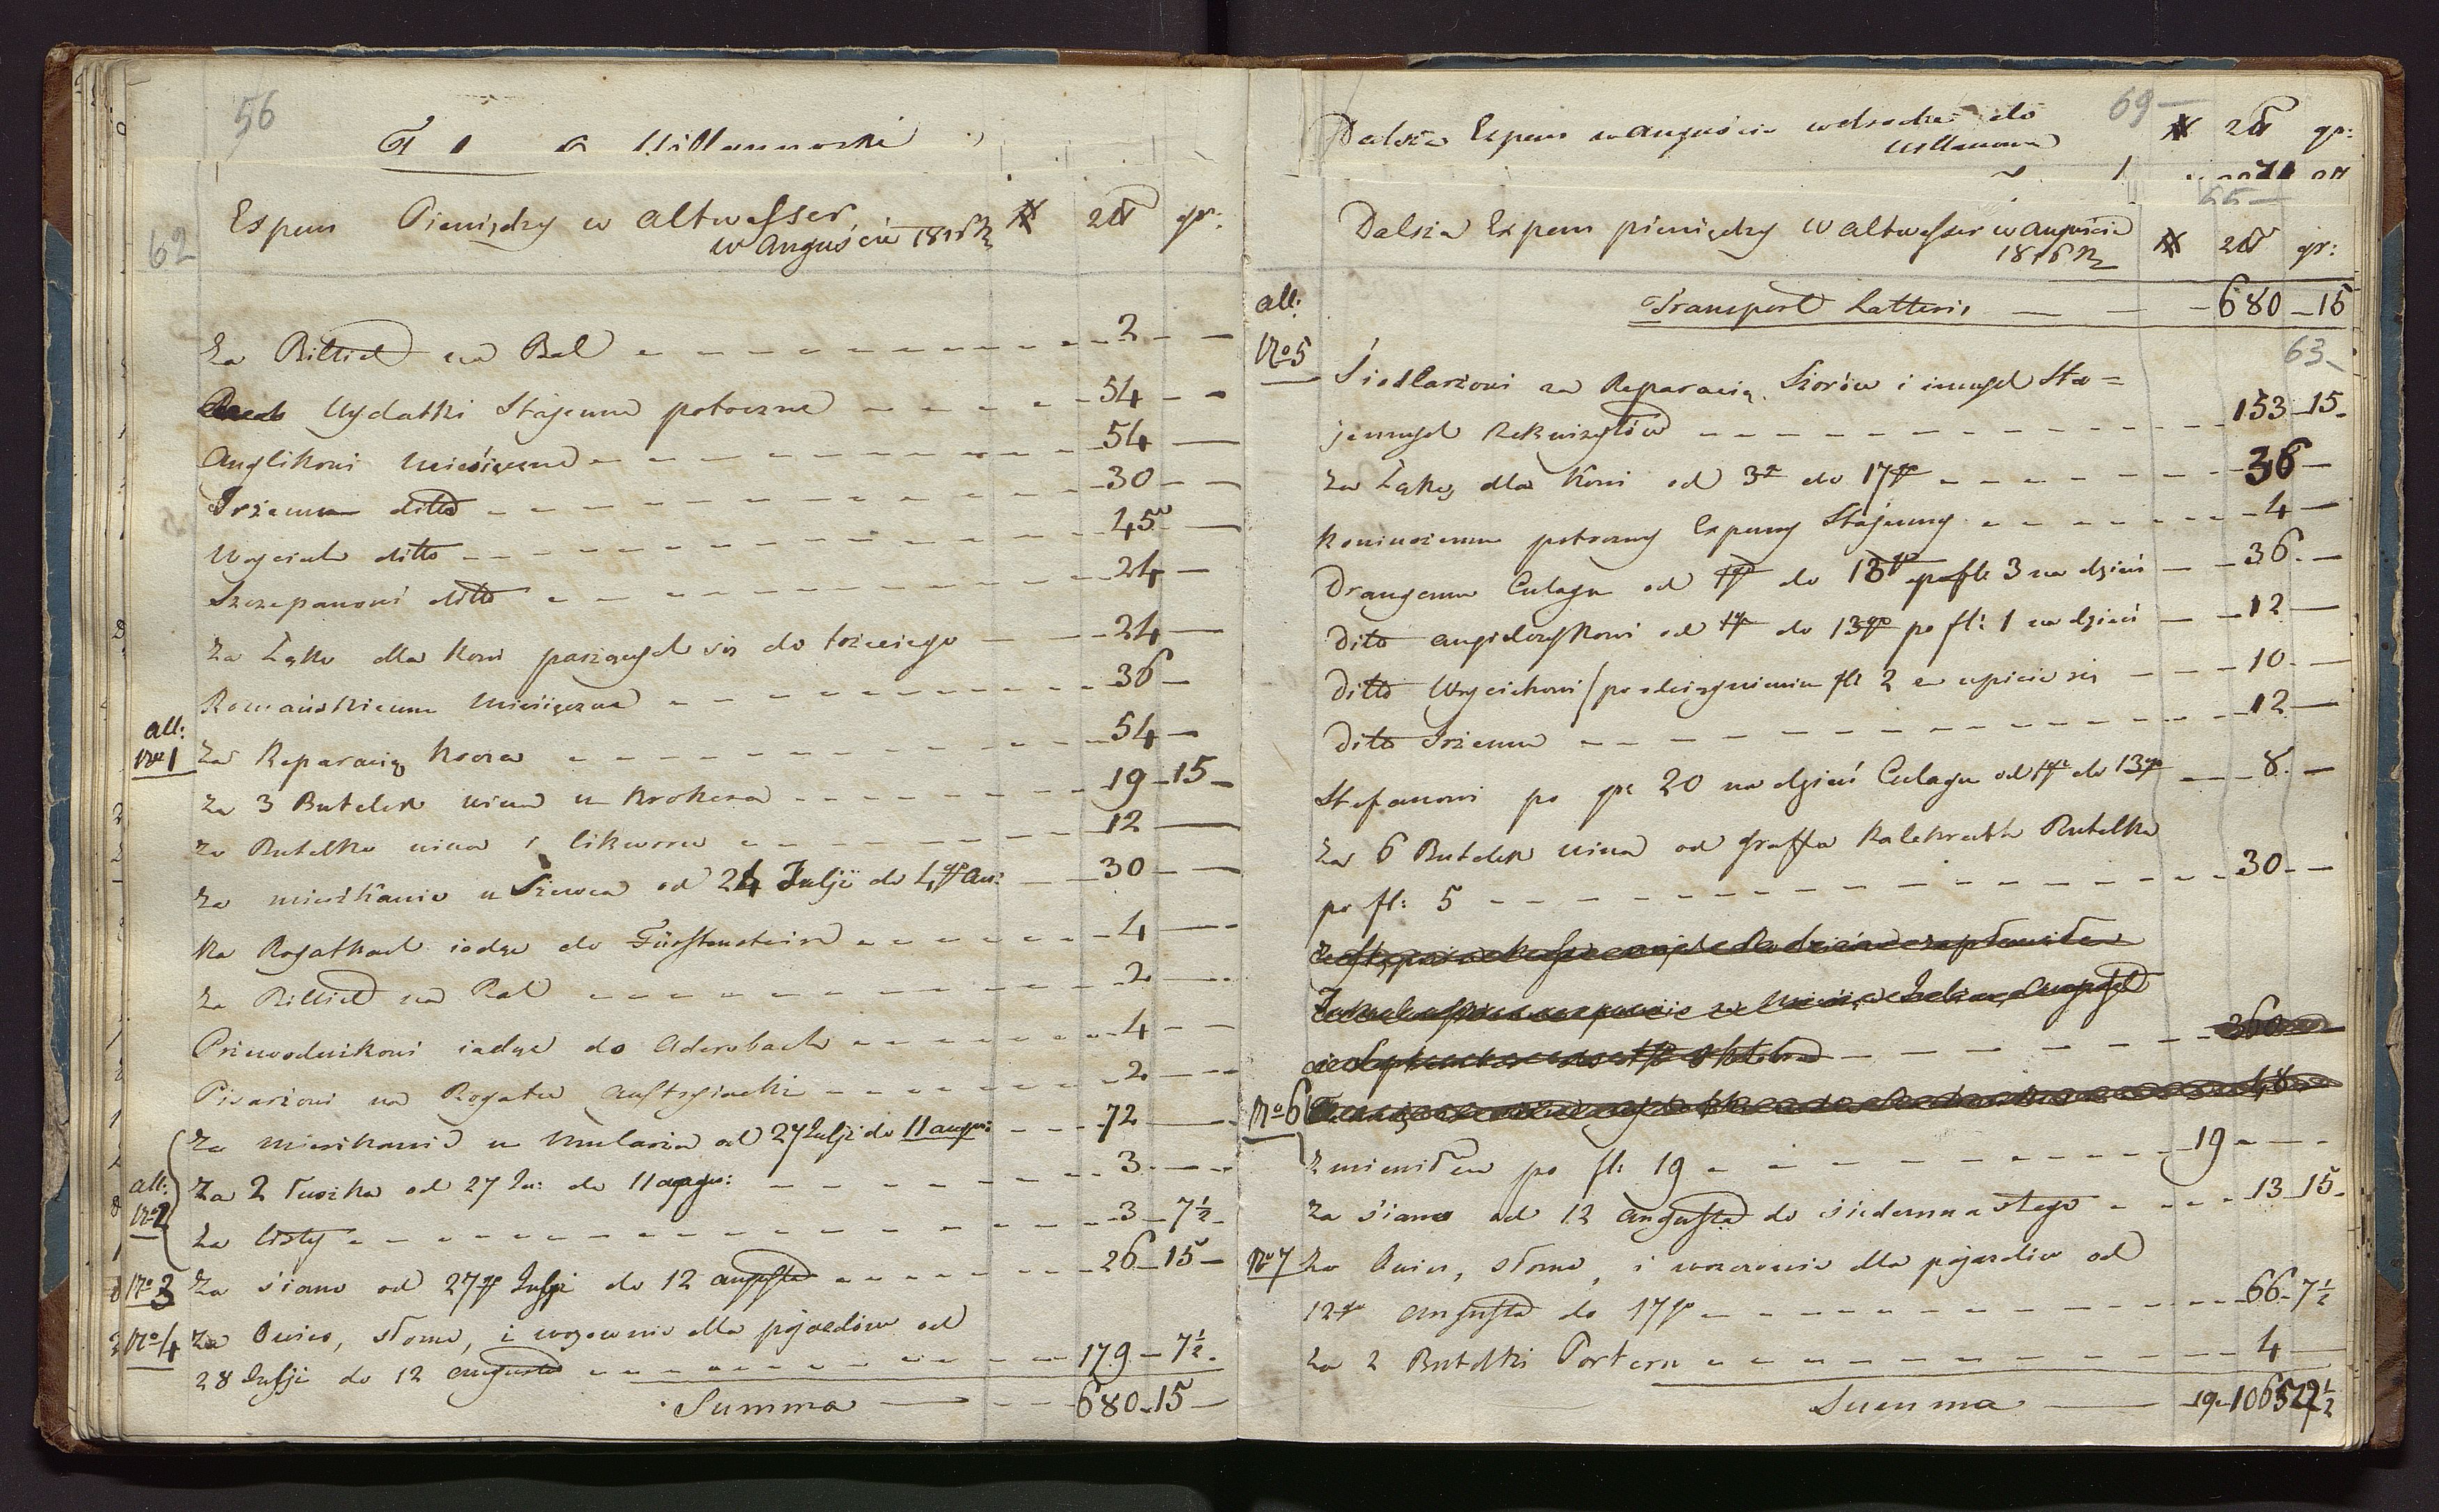 56
Willanowski
62
Expens Pieniędzy w Altwasser
w Auguście 1816 R
# zł gr:
Za Billiet na Bal 2 —
Wydatki Stajenne potoczne 54 —
Anglikowi Miesięczne 54 —
Jrżemu ditto 30 —
Woyciech ditto 45 —
Szczepanowi ditto 24 —
Za Łąke dla Koni paszących się do trzeciego 24 —
Romańskiemu Miesięczne 36 —
all:
No 1 Za Reparacią Kocza 54 —
Za 3 Butelek wina u Krokera 19 15
Za Butelke wina i likworu 12 —
Za mieszkanie u Szewca od 24 Julji do 4go Au: 30 —
Na Rogatkach iadąc do Fürstenstein 4 —
Za Billiet na Bal 2 —
Przewodnikowi iadąc do Adersbach 4 —
Pisarzowi na Rogatce Austryiackie 2 —
Za mieszkanie u Mularza od 27 Julji do 11 augu: 72 —
all:
No 2
Za 2 łuszka od 27 Ju: do 11 augu: 3 —
Za listy 3 7½
No 3 Za siano od 27go Julji do 12 augusta 26 15
No 4 Za Owies, słome, i wozownie dla pojazdów od
28 Julji do 12 augusta 179 7½
Summa 680 15
69
Dalsza Expens w auguście w drodze do
Willanowa
# zł gr:
Dalsza Expens pieniędzy w Altwasser w auguście
1816 R
# zł gr:
Transport Latteris 680 15
63
all:
No 5
Siodlarzowi za Reparacią Szorów i innych Sta=
jennych Rekwizytów 153 15
Za Łąkę dla Koni od 3o do 17go 36 —
Koniuszemu potoczny Expensy Stajenny 4 —
Drangemu Culagu od 1go do 13go po fl: 3 na dzień 36 —
Ditto angielczykowi od 1go do 13go po fl: 1 na dzień 12 —
Ditto Woyciechowi / po odciągnieniu fl: 2 za upicie się 10 —
Ditto Jrżemu 12 —
Stefanowi po gr: 20 na dzień Culagu od 1go do 13go 8 —
Za 6 Butelek wina od Graffa Kalckreuth Butelka
po fl: 5 30 —
360
No 6
Zmieniłem po fl: 19 19 —
Za siano od 12 augusta do siedemnastego 13 15
No 7 Za Owies, słome, i wozownie dla pojazdów od
12go augusta do 17go 66 7½
Za 2 Butelki Porteru 4 —
Summa 19 1065 22½